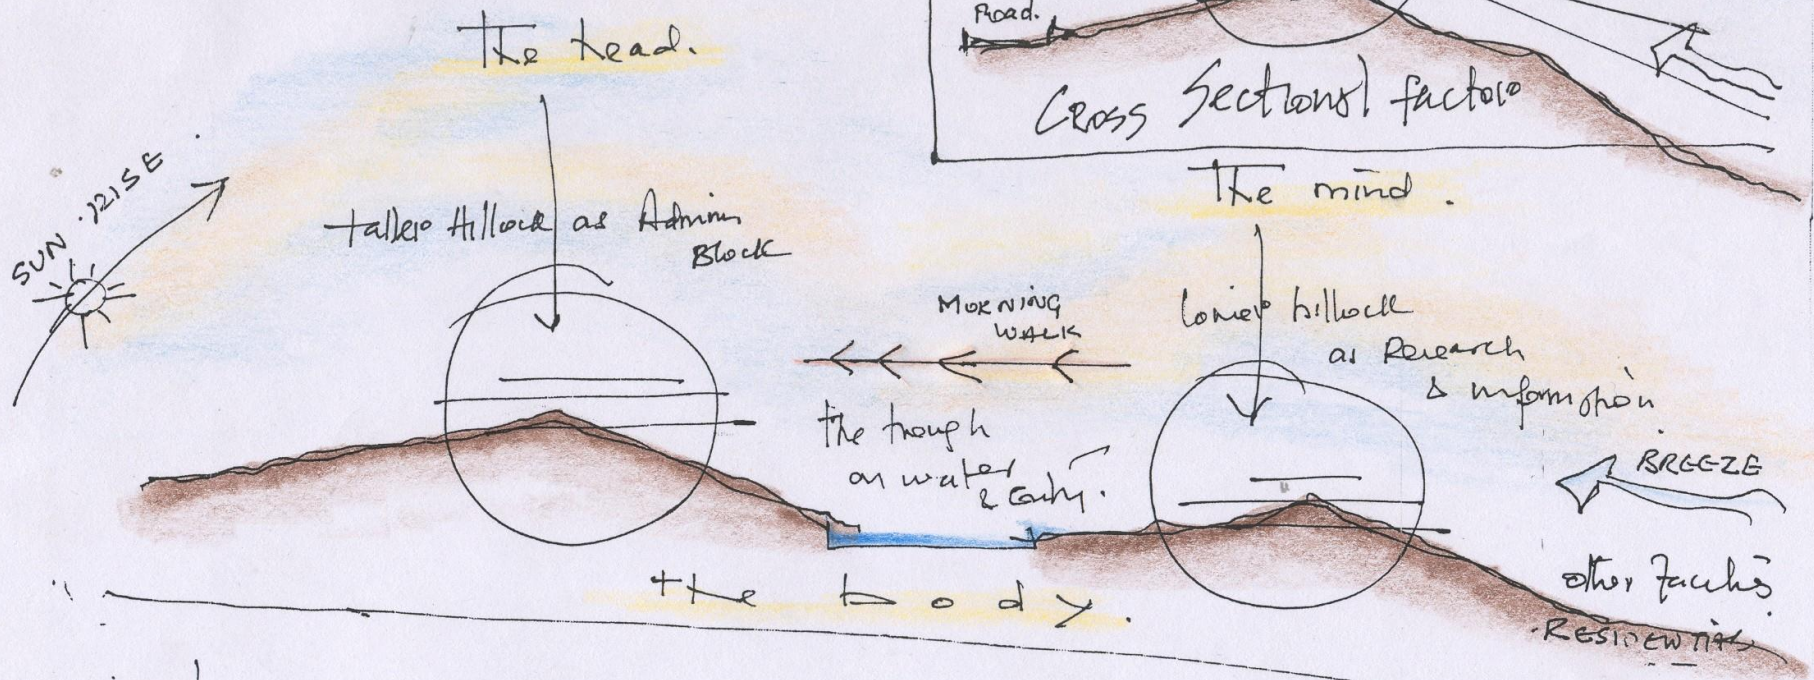 The head.
Road.
Cross Sectional factors
The mind.
SUN RISE
taller Hillock as Admin
Block
MORNING
WALK
lower hillock
as Research
& information
the trough
as water
& Entry.
BREEZE
the body.
other facilities
RESIDENTIAL